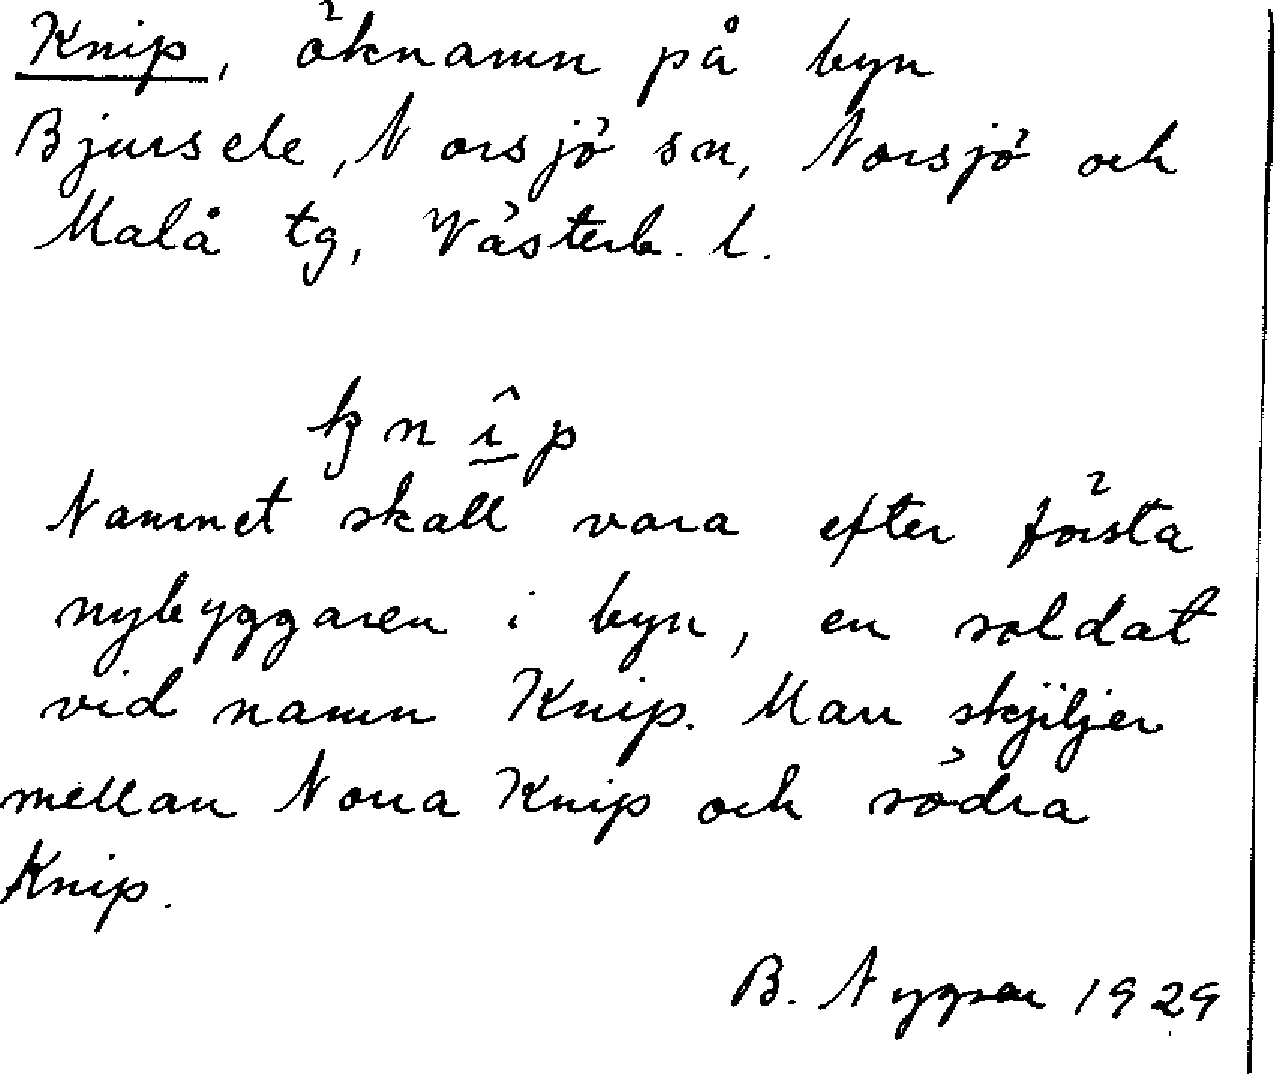 Knip, öknamn på byn
Bjursele, Norsjö sn, Norsjö och
Malå tg, Västerb. l.
kn î p
Namnet skall vara efter första
nybyggaren i byn, en soldat
vid namn Knip. Man skiljer
mellan Norra Knip och södra
Knip.
B. Nygren 1929